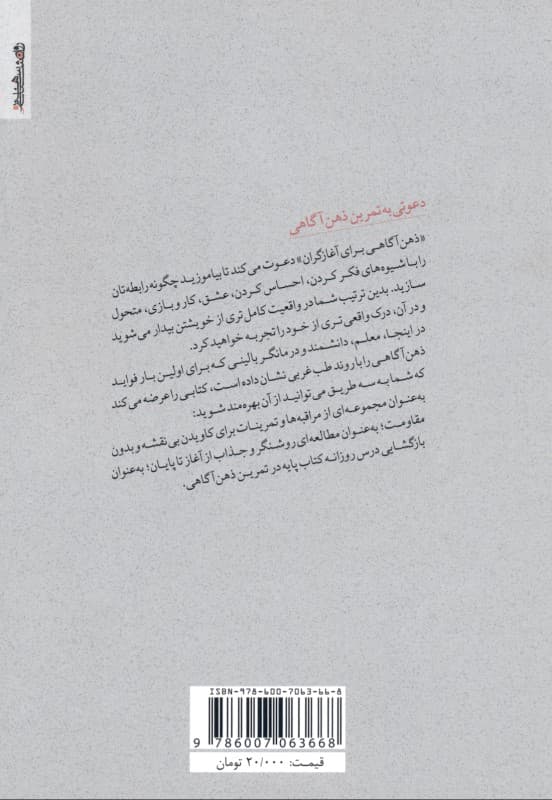 دعوتی به تمرین ذهن‌آگاهی
«ذهن‌آگاهی برای آغازگران» دعوت می‌کند تا بیاموزید چگونه رابطه‌تان
را با شیوه‌های فکر کردن، احساس کردن، عشق، کار و بازی، متحول
سازید. بدین ترتیب شما در واقعیت کامل‌تری از خویشتن بیدار می‌شوید
و در آن، درک واقعی‌تری از خود را تجربه خواهید کرد.
در اینجا، معلم، دانشمند و درمانگر بالینی که برای اولین بار فواید
ذهن‌آگاهی را با روند طب غربی نشان داده است، کتابی را عرضه می‌کند
که شما به سه طریق می‌توانید از آن بهره‌مند شوید:
به‌عنوان مجموعه‌ای از مراقبه‌ها و تمرینات برای کاویدن بی‌نقشه و بدون
مقاومت؛ به‌عنوان مطالعه‌ای روشنگر و جذاب از آغاز تا پایان؛ به‌عنوان
بازگشایی درس روزانه کتاب پایه در تمرین ذهن‌آگاهی.
ISBN-978-600-7063-66-8
9 786007 063668
قیمت: ۲۰/۰۰۰ تومان